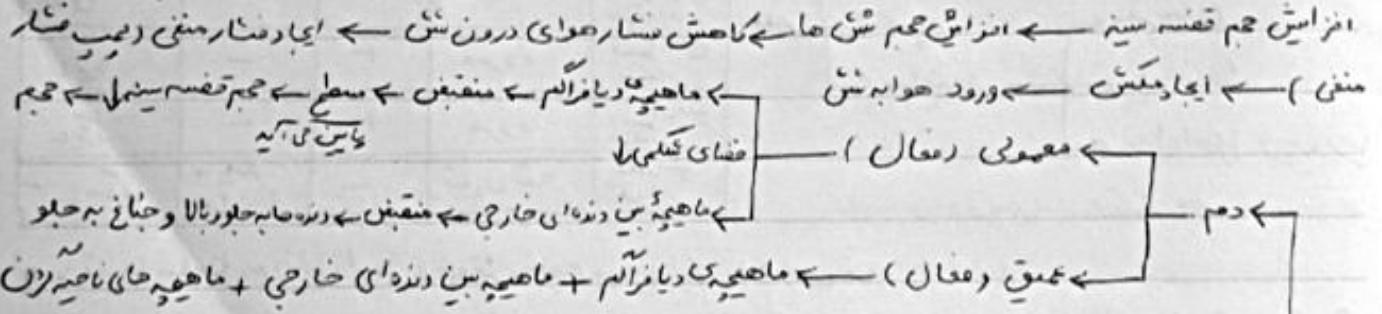 افزایش حجم قفسه سینه ← افزایش حجم شش ها ← کاهش فشار هوای درون شش ← ایجاد فشار منفی (مکش فشار
منفی) ← ایجاد مکش ← ورود هوا به شش
← ماهیچهٔ دیافراگم ← منقبض ← مسطح ← حجم قفسه سینه ↑ ← حجم
پایین می آید
فضای شکمی ↓
← معمولی (فعال)
← ماهیچهٔ بین دنده ای خارجی ← منقبض ← دنده ها به جلو و بالا و جناغ به جلو
← دم
← عمیق (فعال) ← ماهیچهٔ دیافراگم + ماهیچه بین دنده ای خارجی + ماهیچه های ناحیه گردن